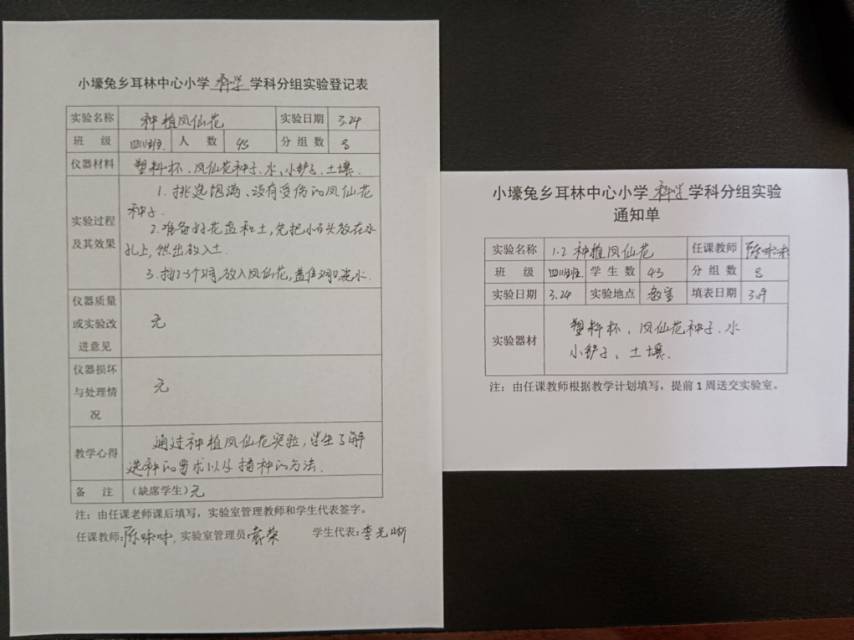 小壕兔乡耳林中心小学 科学 学科分组实验登记表
实验名称 种植凤仙花 实验日期 3.24
班 级 四(1)班 人 数 43 分 组 数 8
仪器材料 塑料杯、凤仙花种子、水、小铲子、土壤.
实验过程及其效果
1. 挑选饱满、没有受伤的凤仙花
种子.
2. 准备好花盆和土,先把小石头放在水
孔上,然后放入土.
3. 放入凤仙花,
仪器质量
或实验改
进意见
无
仪器损坏
与处理情
况
无
教学心得
通过种植凤仙花实验,学生了解
选种的要求以及播种的方法.
备 注 (缺席学生)无
注:由任课老师课后填写,实验室管理教师和学生代表签字。
任课教师: 实验室管理员: 学生代表:李光晰
小壕兔乡耳林中心小学 科学 学科分组实验
通知单
实验名称 1.2 种植凤仙花 任课教师
班 级 四(1)班 学 生 数 43 分 组 数 8
实验日期 3.24 实验地点 教室 填表日期
实验器材
塑料杯、凤仙花种子、水
小铲子、土壤.
注:由任课教师根据教学计划填写,提前 1 周送交实验室。